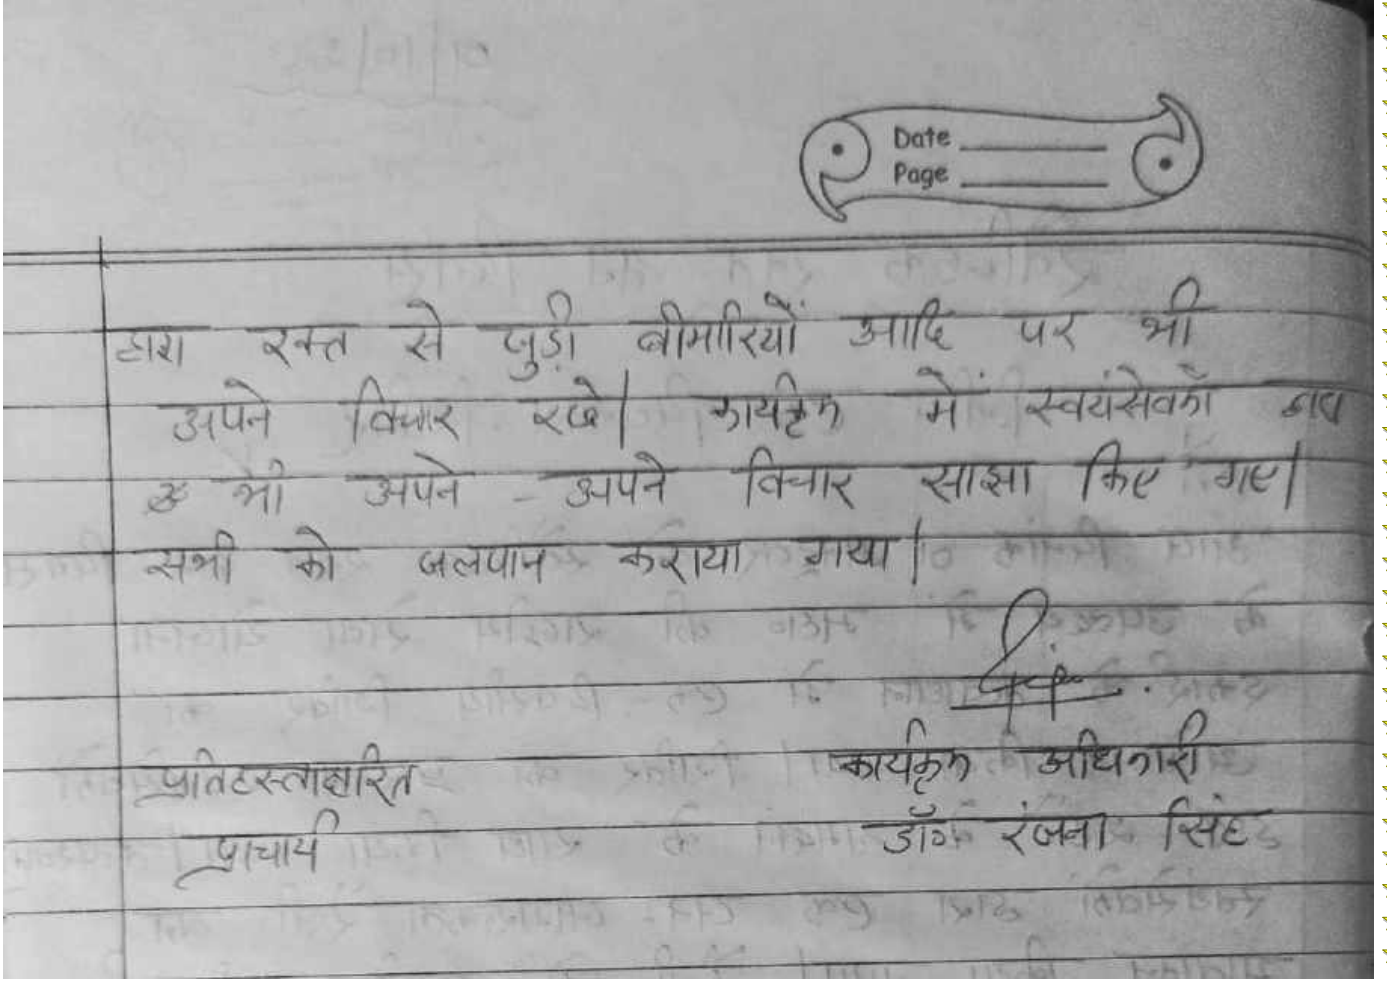 Date
Page
द्वारा रक्त से जुड़ी बीमारियों आदि पर भी
अपने विचार रखे। कार्यक्रम में स्वयंसेवकों द्वारा
भी अपने - अपने विचार साझा किए गए।
सभी को जलपान कराया गया।
प्रतिहस्ताक्षरित
कार्यक्रम अधिकारी
प्राचार्य
डॉ० रंजना सिंह